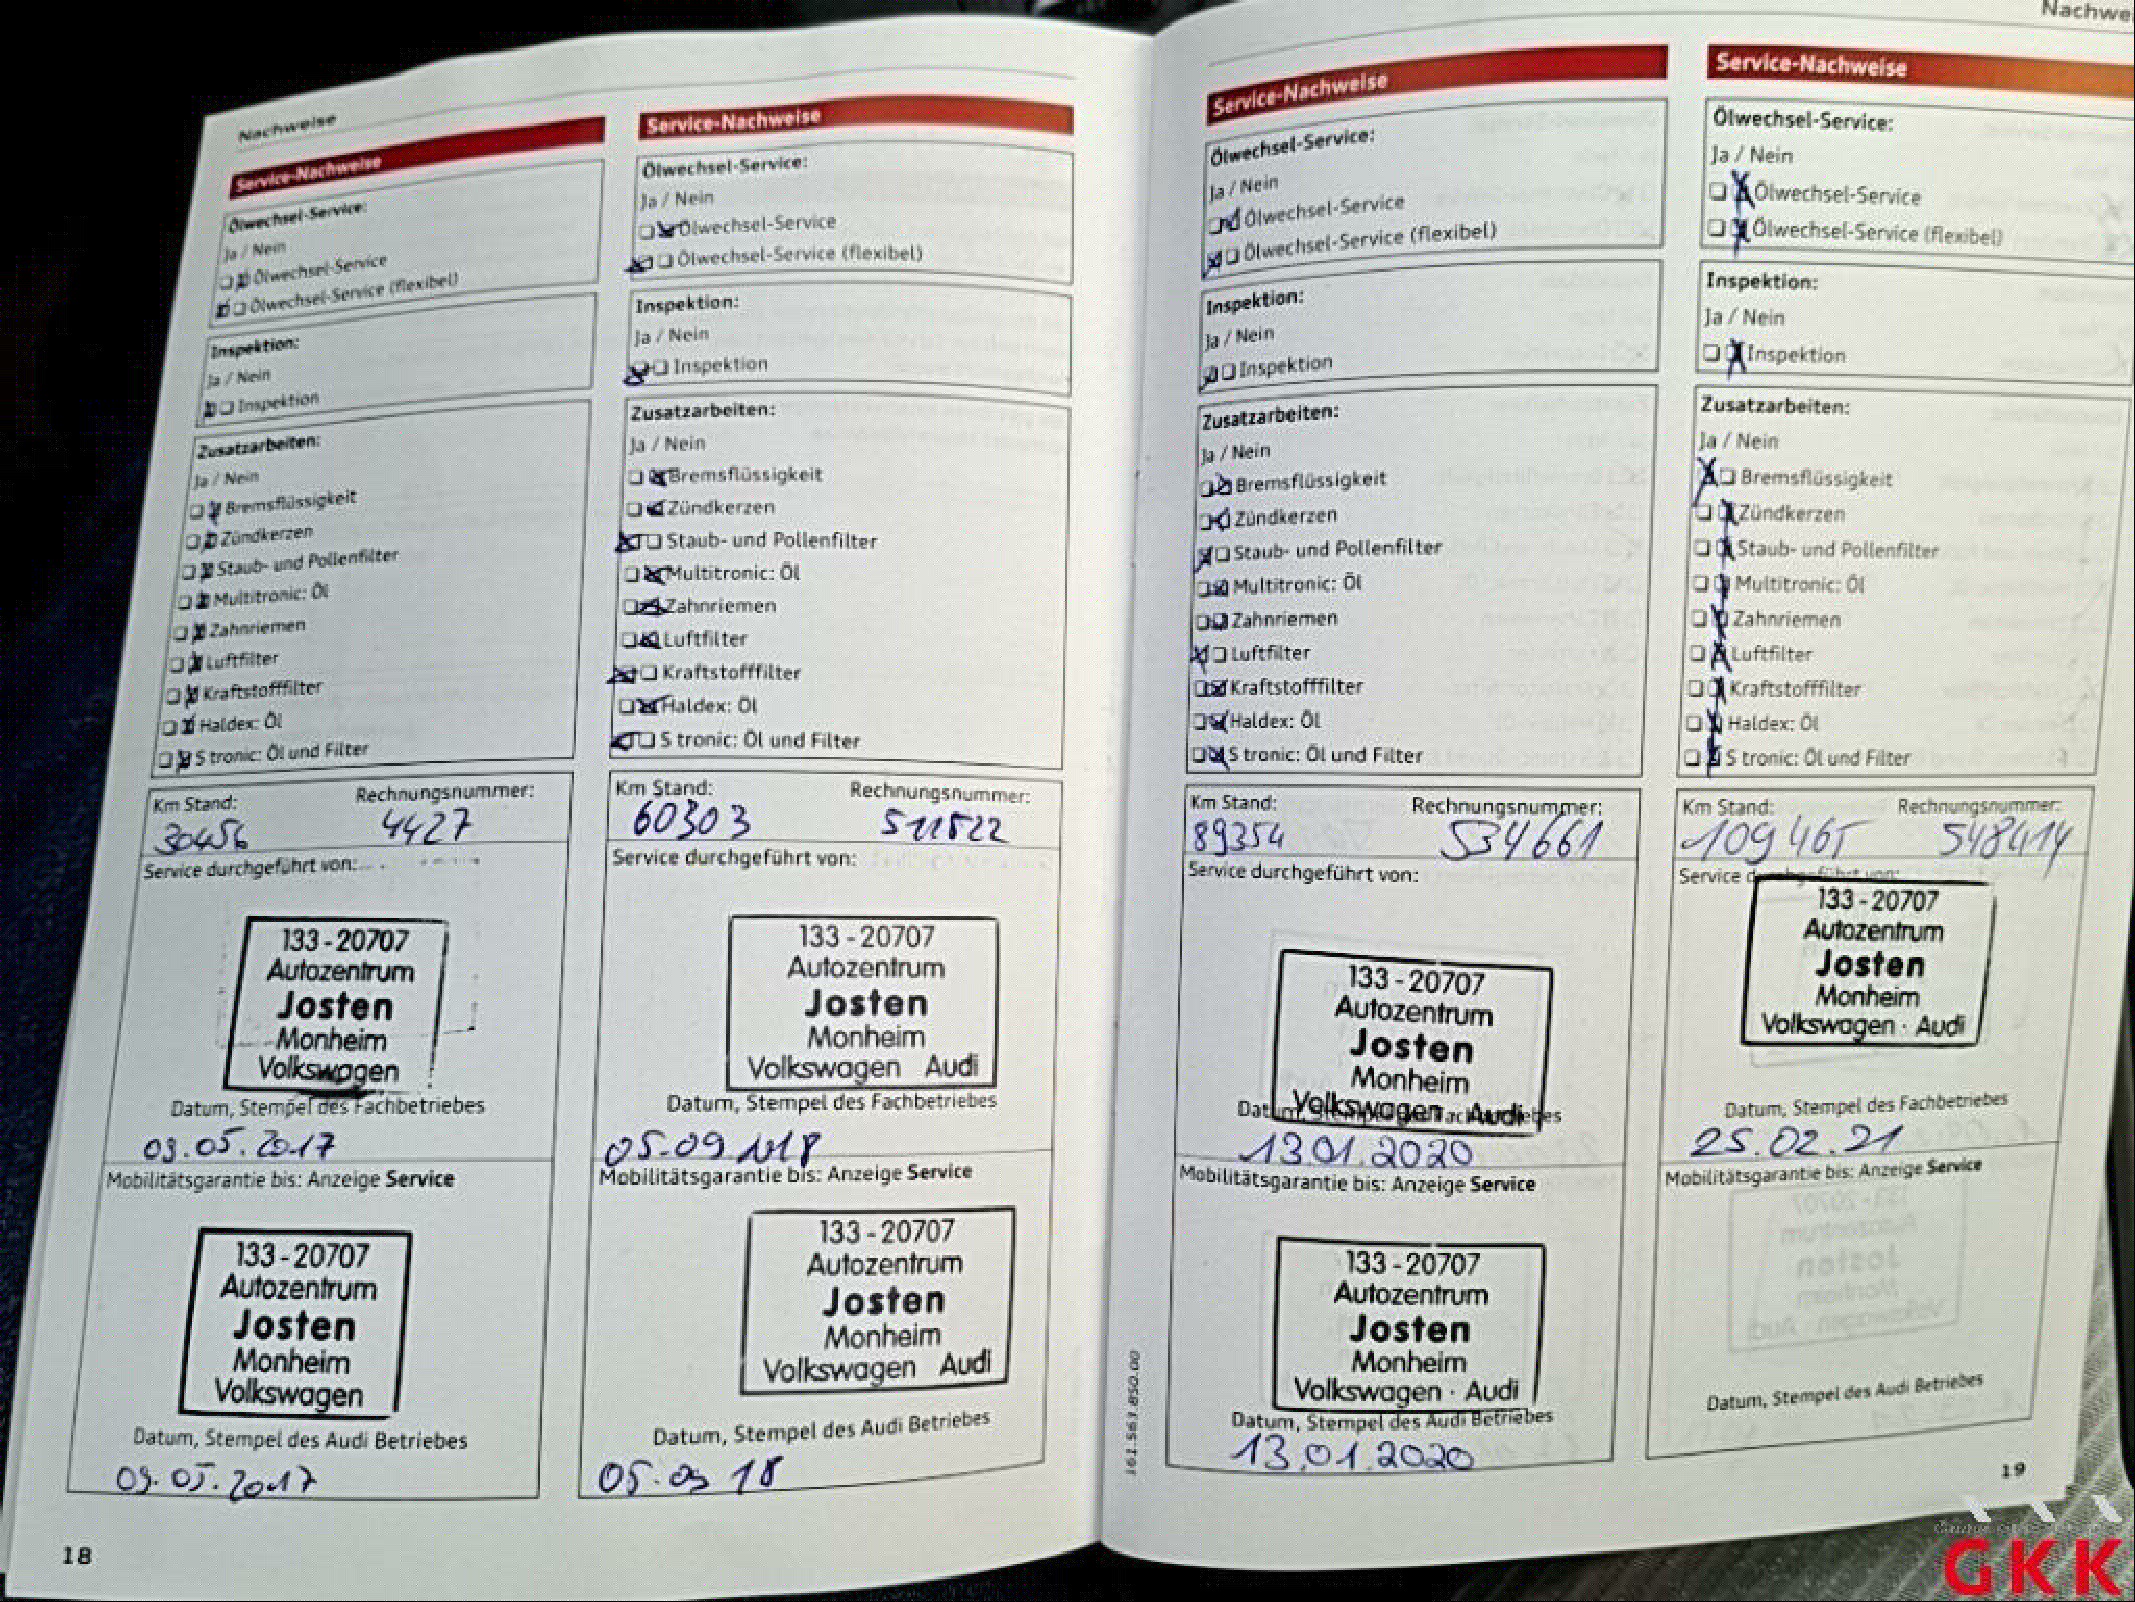 Nachweise
Service-Nachweise
Ölwechsel-Service:
Ja / Nein
Ölwechsel-Service
Ölwechsel-Service (flexibel)
Inspektion:
Ja / Nein
Inspektion
Zusatzarbeiten:
Ja / Nein
Bremsflüssigkeit
Zündkerzen
Staub- und Pollenfilter
Multitronic: Öl
Zahnriemen
Luftfilter
Kraftstofffilter
Haldex: Öl
S tronic: Öl und Filter
Km Stand: Rechnungsnummer:
30456 4427
Service durchgeführt von:
133-20707
Autozentrum
Josten
Monheim
Volkswagen
Datum, Stempel des Fachbetriebes
09.05.2017
Mobilitätsgarantie bis: Anzeige Service
133-20707
Autozentrum
Josten
Monheim
Volkswagen
Datum, Stempel des Audi Betriebes
09.05.2017
18
Service-Nachweise
Ölwechsel-Service:
Ja / Nein
Ölwechsel-Service
Ölwechsel-Service (flexibel)
Inspektion:
Ja / Nein
Inspektion
Zusatzarbeiten:
Ja / Nein
Bremsflüssigkeit
Zündkerzen
Staub- und Pollenfilter
Multitronic: Öl
Zahnriemen
Luftfilter
Kraftstofffilter
Haldex: Öl
S tronic: Öl und Filter
Km Stand: Rechnungsnummer:
60303 511522
Service durchgeführt von:
133-20707
Autozentrum
Josten
Monheim
Volkswagen Audi
Datum, Stempel des Fachbetriebes
05.09.2018
Mobilitätsgarantie bis: Anzeige Service
133-20707
Autozentrum
Josten
Monheim
Volkswagen Audi
Datum, Stempel des Audi Betriebes
05.09 18
Service-Nachweise
Ölwechsel-Service:
Ja / Nein
Ölwechsel-Service
Ölwechsel-Service (flexibel)
Inspektion:
Ja / Nein
Inspektion
Zusatzarbeiten:
Ja / Nein
Bremsflüssigkeit
Zündkerzen
Staub- und Pollenfilter
Multitronic: Öl
Zahnriemen
Luftfilter
Kraftstofffilter
Haldex: Öl
S tronic: Öl und Filter
Km Stand: Rechnungsnummer:
89354 534661
Service durchgeführt von:
133-20707
Autozentrum
Josten
Monheim
Volkswagen Audi
13.01.2020
Mobilitätsgarantie bis: Anzeige Service
133-20707
Autozentrum
Josten
Monheim
Volkswagen · Audi
Datum, Stempel des Audi Betriebes
13.01.2020
161.563.850.00
Nachwe
Service-Nachweise
Ölwechsel-Service:
Ja / Nein
Ölwechsel-Service
Ölwechsel-Service (flexibel)
Inspektion:
Ja / Nein
Inspektion
Zusatzarbeiten:
Ja / Nein
Bremsflüssigkeit
Zündkerzen
Staub- und Pollenfilter
Multitronic: Öl
Zahnriemen
Luftfilter
Kraftstofffilter
Haldex: Öl
S tronic: Öl und Filter
Km Stand: Rechnungsnummer:
109465 548414
Service durchgeführt von:
133-20707
Autozentrum
Josten
Monheim
Volkswagen · Audi
Datum, Stempel des Fachbetriebes
25.02.21
Mobilitätsgarantie bis: Anzeige Service
Datum, Stempel des Audi Betriebes
19
GKK